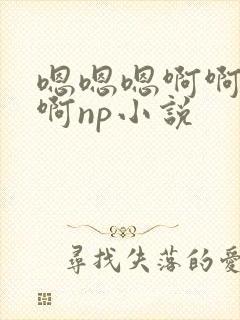 嗯嗯嗯啊啊
啊np小説
尋找失落的愛